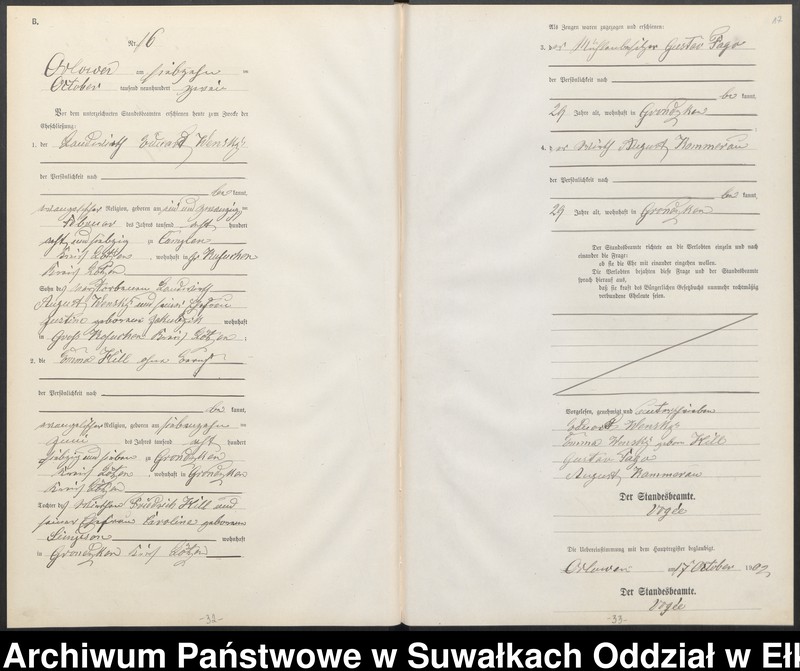 B.
Nr. 16
Orlowen am siebzehn ten
October tausend neunhundert zwei
Vor dem unterzeichneten Standesbeamten erschienen heute zum Zwecke der
Eheschließung:
1. der Landwirth Eduard Wensky
der Persönlichkeit nach
be kannt,
evangelischer Religion, geboren am ein und zwanzig ten
Februar des Jahres tausend acht hundert
acht und siebzig zu
Kreis Lötzen, wohnhaft in
Kreis Lötzen
Sohn des verstorbenen Landwirth
August Wensky und seiner Ehefrau
Justine geborene wohnhaft
in Groß Kreis Lötzen
2. die Emma Kill ohne Beruf
der Persönlichkeit nach
be kannt,
evangelischer Religion, geboren am siebenzehn ten
Juni des Jahres tausend acht hundert
siebzig und sieben zu Grondzken
Kreis Lötzen, wohnhaft in Grondzken
Kreis Lötzen
Tochter des Wirthen Friedrich Kill und
seiner Ehefrau Caroline geborene
wohnhaft
in Grondzken Kreis Lötzen
-32-
Als Zeugen waren zugezogen und erschienen:
3. der Mühlenbesitzer Gustav Pago
der Persönlichkeit nach
be kannt,
29 Jahre alt, wohnhaft in Grondzken
4. der Wirth August Kammerau
der Persönlichkeit nach
be kannt,
29 Jahre alt, wohnhaft in Grondzken
Der Standesbeamte richtete an die Verlobten einzeln und nach
einander die Frage:
ob sie die Ehe mit einander eingehen wollen.
Die Verlobten bejahten diese Frage und der Standesbeamte
sprach hierauf aus,
daß sie kraft des Bürgerlichen Gesetzbuchs nunmehr rechtmäßig
verbundene Eheleute seien.
Vorgelesen, genehmigt und unterschrieben
Eduard Wensky
Emma Wensky geboren Kill
Gustav Pago
August Kammerau
Der Standesbeamte.
Die Uebereinstimmung mit dem Hauptregister beglaubigt.
Orlowen am 17 October 1902
Der Standesbeamte.
-33-
Archiwum Państwowe w Suwałkach Oddział w Eł